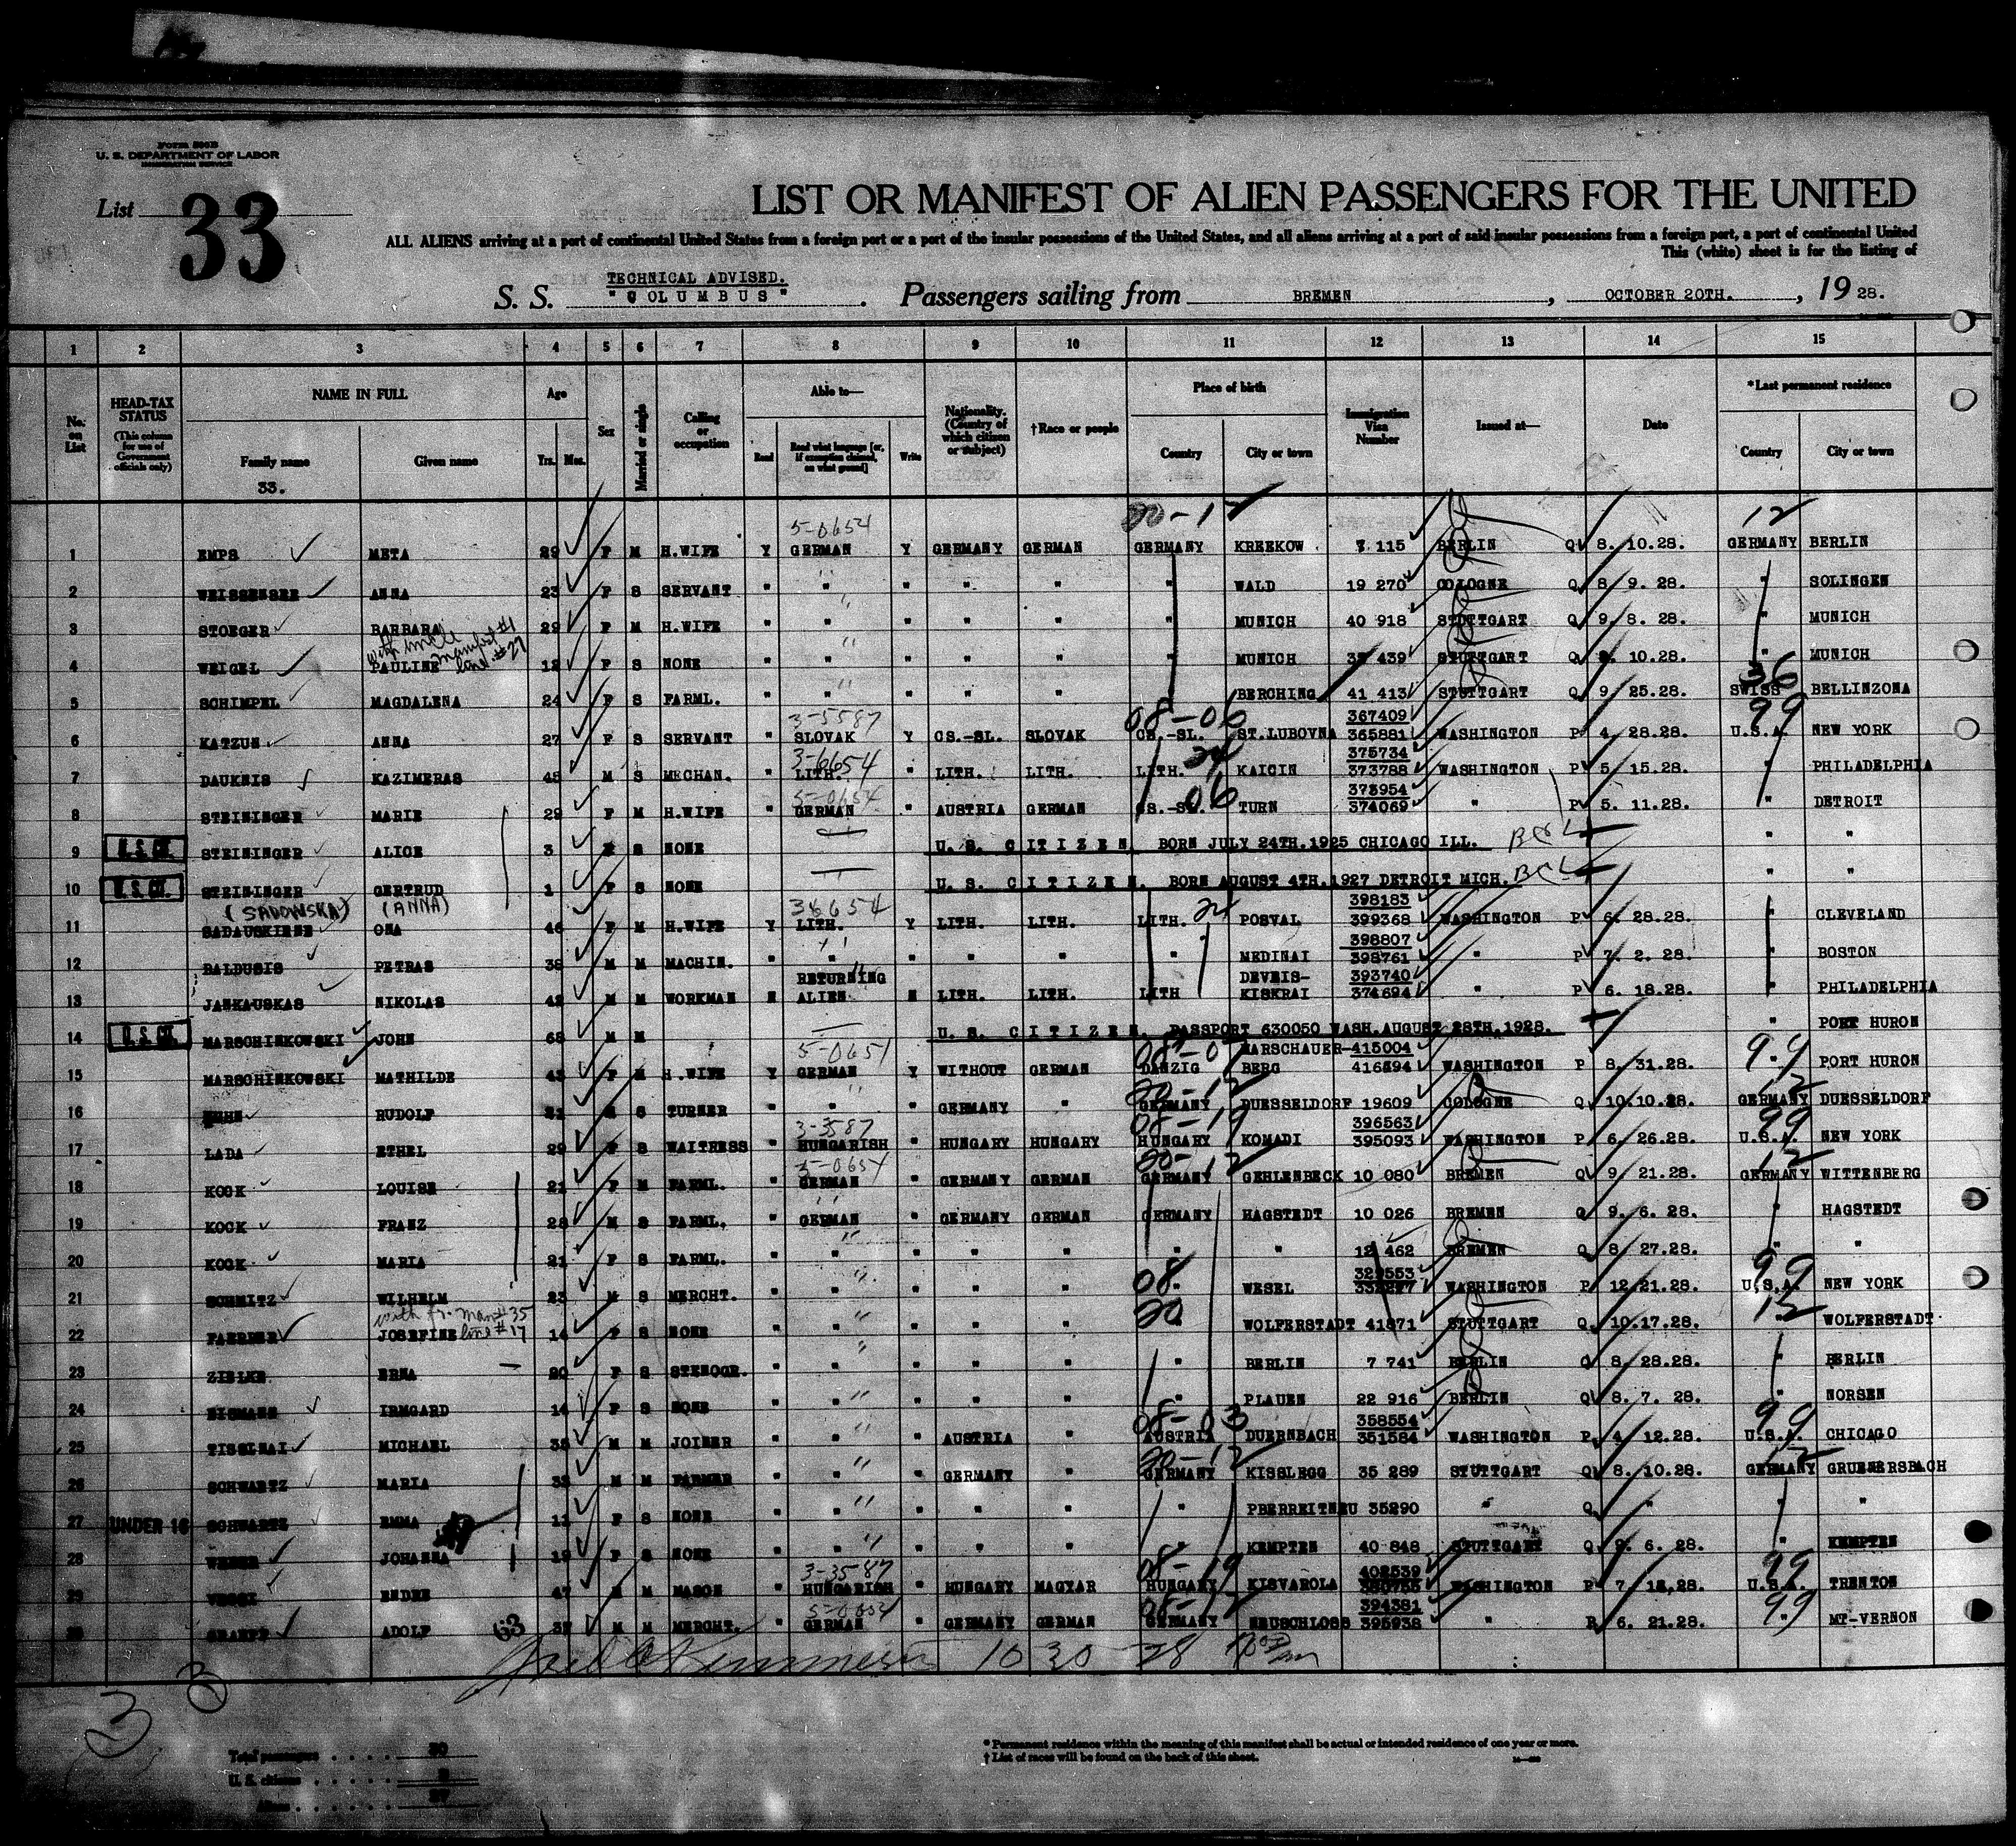 Form 500B
U. S. DEPARTMENT OF LABOR
IMMIGRATION SERVICE
List 33
LIST OR MANIFEST OF ALIEN PASSENGERS FOR THE UNITED
ALL ALIENS arriving at a port of continental United States from a foreign port or a port of the insular possessions of the United States, and all aliens arriving at a port of said insular possessions from a foreign port, a port of continental United
This (white) sheet is for the listing of
TECHNICAL ADVISED.
S. S. "COLUMBUS". Passengers sailing from BREMEN, OCTOBER 20TH., 1928.
1 2 3 4 5 6 7 8 9 10 11 12 13 14 15
No. on List
HEAD-TAX STATUS (This column for use of Government officials only)
NAME IN FULL Family name Given name
33.
Age Yrs. Mos.
Sex
Married or single
Calling or occupation
Able to— Read Read what language [or, if exemption claimed, on what ground] Write
Nationality. (Country of which citizen or subject)
†Race or people
Place of birth Country City or town
Immigration Visa Number
Issued at—
Date
*Last permanent residence Country City or town
5-0654 20-12 12
1 EMPS META 29 F M H.WIFE Y GERMAN Y GERMANY GERMAN GERMANY KREEKOW 7 115 BERLIN Q 8. 10.28. GERMANY BERLIN
2 WEISSENSER ANNA 23 F S SERVANT " " " " " " WALD 19 270 COLOGNE Q 8 9. 28. " SOLINGEN
3 STOEGER BARBARA 29 F M H.WIFE " " " " " " MUNICH 40 918 STUTTGART Q 9 8. 28. " MUNICH
with uncle manifest #1 line #27
4 WEIGEL PAULINE 12 F S NONE " " " " " " MUNICH 439 STUTTGART Q 10.28. " MUNICH
5 SCHIMPEL MAGDALENA 24 F S FARML. " " " " " " BERCHING 41 413 STUTTGART Q 9 25.28. SWISS 36 BELLINZONA
3-5587 08-06 367409 99
6 KATZUN ANNA 27 F S SERVANT " SLOVAK Y CS.-SL. SLOVAK CS.-SL. ST.LUBOVNA 365881 WASHINGTON P 4 28.28. U.S.A. NEW YORK
3-6654 24 375734
7 DAUKNIS KAZIMERAS 45 M S MECHAN. " LITH. " LITH. LITH. LITH. KAICIN 373788 WASHINGTON P 5 15.28. " PHILADELPHIA
5-0654 06 373954
8 STEININGER MARIE 29 F M H.WIFE " GERMAN " AUSTRIA GERMAN CS.-SL. TURN 374069 " P 5. 11.28. " DETROIT
9 U.S. CIT. STEININGER ALICE 3 S NONE U. S. C I T I Z E N BORN JULY 24TH.1925 CHICAGO ILL. " "
10 U.S. CIT. STEININGER GERTRUD 1 F S NONE U. S. C I T I Z E N. BORN AUGUST 4TH.1927 DETROIT MICH. " "
(SADOWSKA) (ANNA) 36654 24 398183
11 SADAUSKIENE ONA 46 F M H.WIFE Y LITH. Y LITH. LITH. LITH. POSVAL 399368 WASHINGTON P 6. 28.28. " CLEVELAND
398807
12 BALDUSIS PETRAS 38 M M MACHIN. " " " " " " MEDINAI 398761 " P 7. 2. 28. " BOSTON
RETURNING DEVEIS- 393740
13 JANKAUSKAS NIKOLAS 42 M M WORKMAN N ALIEN N LITH. LITH. LITH KISKRAI 374694 " P 6. 18.28. " PHILADELPHIA
14 U.S. CIT. MARSCHINKOWSKI JOHN 68 M M U. S. C I T I Z E N. PASSPORT 630050 WASH.AUGUST 28TH.1928. " PORT HURON
5-0651 MARSCHAUER- 415004
15 MARSCHINKOWSKI MATHILDE F M H.WIFE Y GERMAN Y WITHOUT GERMAN DANZIG BERG 416894 WASHINGTON P 8. 31.28. 99 PORT HURON
16 RUDOLF S TURNER " " " GERMANY " GERMANY 20-12 DUESSELDORF 19609 COLOGNE Q 10.10.28. GERMANY 12 DUESSELDORF
3-3587 08-19 396563 99
17 LADA ETHEL 29 F S WAITRESS " HUNGARISH " HUNGARY HUNGARY HUNGARY KOMADI 395093 WASHINGTON P 6. 26.28. U.S.A. NEW YORK
5-0654 20-12 12
18 KOCK LOUISE 21 F M FARML. " GERMAN " GERMANY GERMAN GERMANY GEHLENBECK 10 080 BREMEN Q 9 21.28. GERMANY WITTENBERG
19 KOCK FRANZ 28 M S FARML. " GERMAN " GERMANY GERMAN GERMANY HAGSTEDT 10 026 BREMEN Q 9. 6. 28. " HAGSTEDT
20 KOCK MARIA 21 F S FARML. " " " " " " " 12 462 BREMEN Q 8 27.28. " "
08 329553 99
21 SCHMITZ WILHELM 23 M S MERCHT. " " " " " " WESEL WASHINGTON P 12 21.28. U.S.A. NEW YORK
with fr. Man #35 line #17 20 12
22 JOSEFINE 14 F S NONE " " " " " " WOLFERSTADT 41871 STUTTGART Q 10.17.28. WOLFERSTADT
23 ZIELKE ERNA 20 F S STENOGR. " " " " " " BERLIN 7 741 BERLIN Q 8. 28.28. " BERLIN
24 IRMGARD 14 F S NONE " " " " " " PLAUEN 22 916 BERLIN Q 8. 7. 28. " NORSEN
08-03 358554 99
25 MICHAEL 38 M M JOINER " " " AUSTRIA " AUSTRIA DUERNBACH 351584 WASHINGTON P 4 12.28. U.S.A. CHICAGO
20-12 12
26 SCHWARTZ MARIA M FARMER " " " GERMANY " GERMANY KISSLEGG 35 289 STUTTGART Q 8. 10.28. GERMANY GRUENERSBACH
27 UNDER 16 SCHWARTZ EMMA 11 F S NONE " " " " " " PBERREITNEU 35290 " Q " " "
28 WEBER JOHANNA 19 F S NONE " " " " " " KEMPTEN 40 848 STUTTGART Q 9. 6. 28. " KEMPTEN
3-35-87 08-19 402539 99
29 ENDRE 47 M M MASON " HUNGARISH " HUNGARY MAGYAR HUNGARY KISVAROLA WASHINGTON P 7 U.S.A. TRENTON
5-0654 08-12 394381 99
30 ADOLF 37 M M MERCHT. " GERMAN " GERMANY GERMAN GERMANY NEUSCHLOSS 395938 " R 6. 21.28. MT-VERNON
63
10 30 28
3 3
Total passengers 30
U. S. citizens 3
Aliens 27
* Permanent residence within the meaning of this manifest shall be actual or intended residence of one year or more.
† List of races will be found on the back of this sheet.